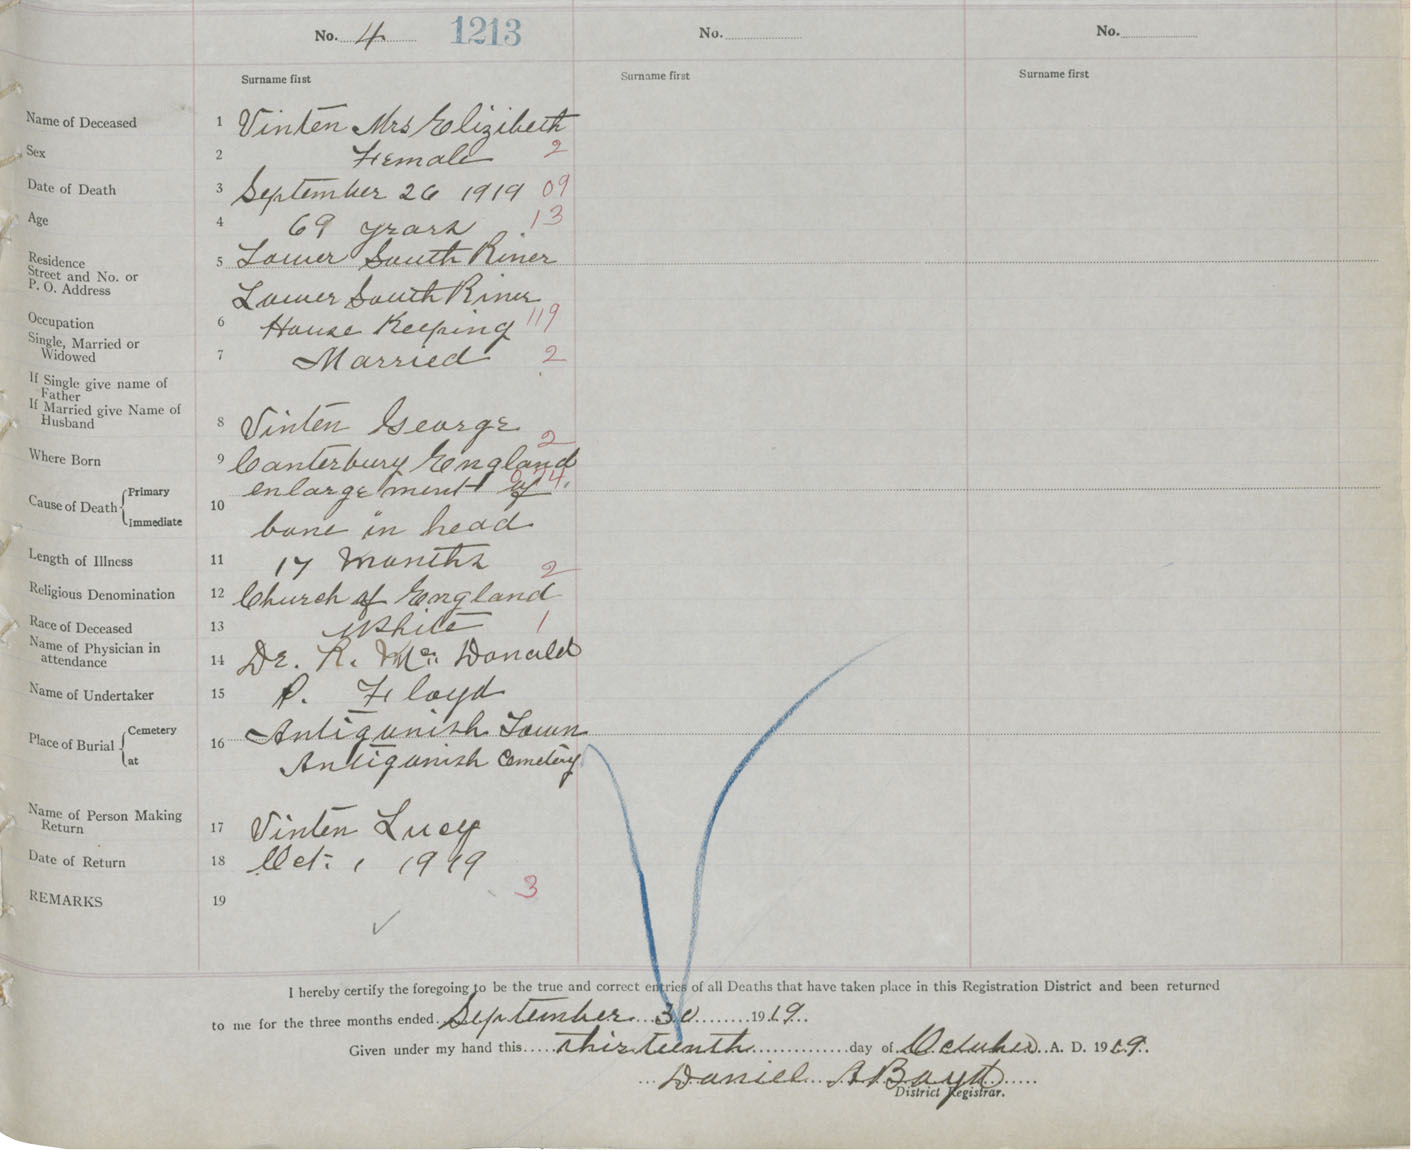 No. 4 1213 No. No.
Surname first Surname first Surname first
Name of Deceased 1 Vinten Mrs Elizibeth
Sex 2 Female 2
Date of Death 3 September 26 1919 09
Age 4 69 years 13
Residence
Street and No. or
P. O. Address
5 Lower South River
Lower South River
Occupation 6 House Keeping 119
Single, Married or
Widowed
7 Married 2
If Single give name of
Father
If Married give Name of
Husband
8 Vinten George
2
Where Born 9 Canterbury England
Cause of Death Primary
Immediate
10
enlargement of
bone in head
Length of Illness 11 17 months 2
Religious Denomination 12 Church of England
Race of Deceased 13 White 1
Name of Physician in
attendance
14 Dr. R. Mc. Donald
Name of Undertaker 15 P. Floyd
Place of Burial Cemetery
at
16 Antigonish Town
Antigonish Cemetery
Name of Person Making
Return
17 Vinten Lucy
Date of Return 18 Oct. 1 1919
3
REMARKS 19
I hereby certify the foregoing to be the true and correct entries of all Deaths that have taken place in this Registration District and been returned
to me for the three months ended September 30 1919.
Given under my hand this thirteenth day of October A. D. 1919.
Daniel A Boyd
District Registrar.